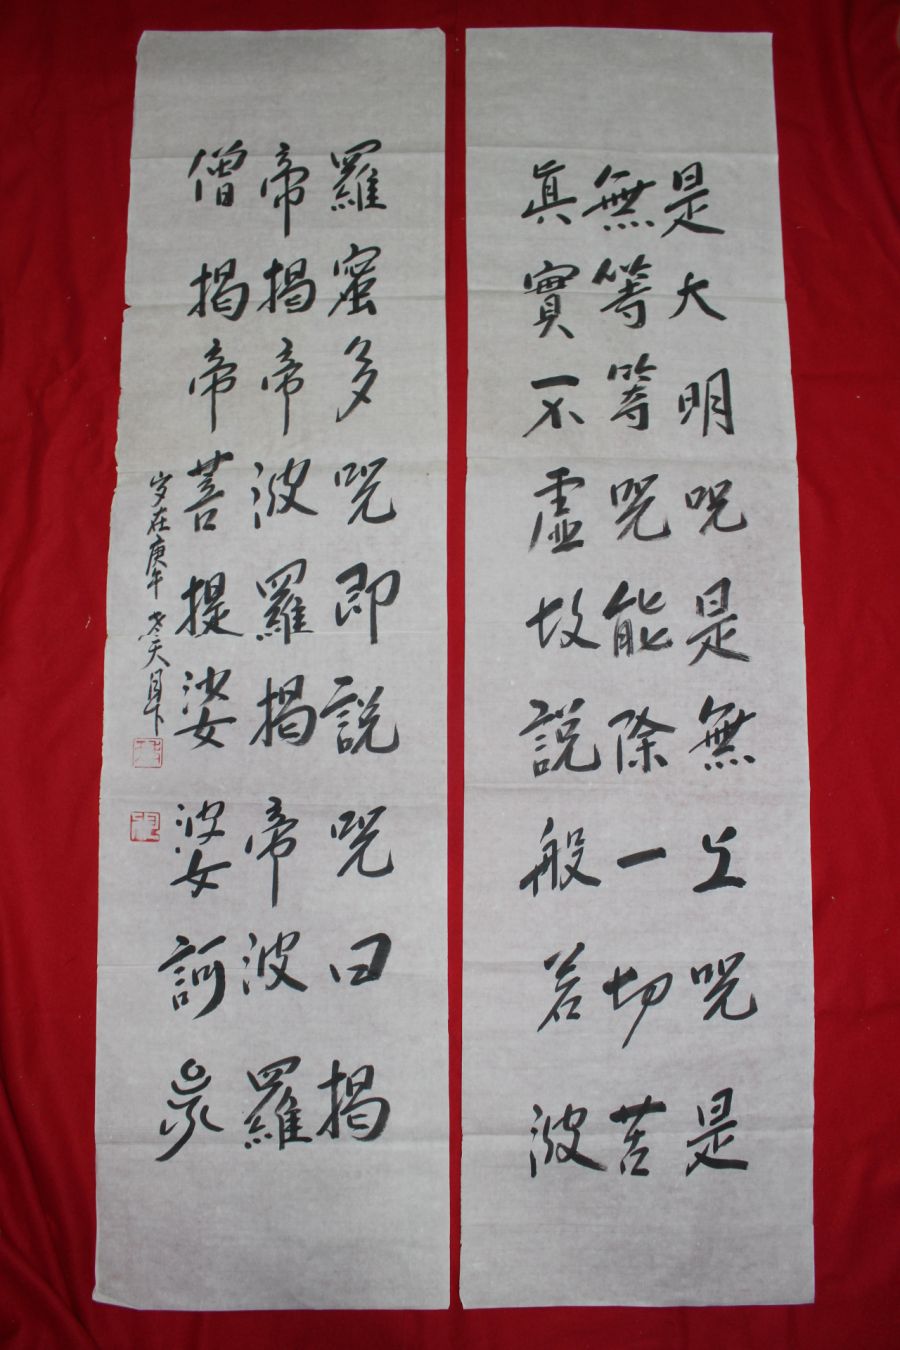 是大明呪是無上呪是
無等等呪能除一切苦
眞實不虛故說般若波
羅蜜多呪即說呪曰揭
帝揭帝波羅揭帝波羅
僧揭帝菩提娑婆訶
岁在庚午